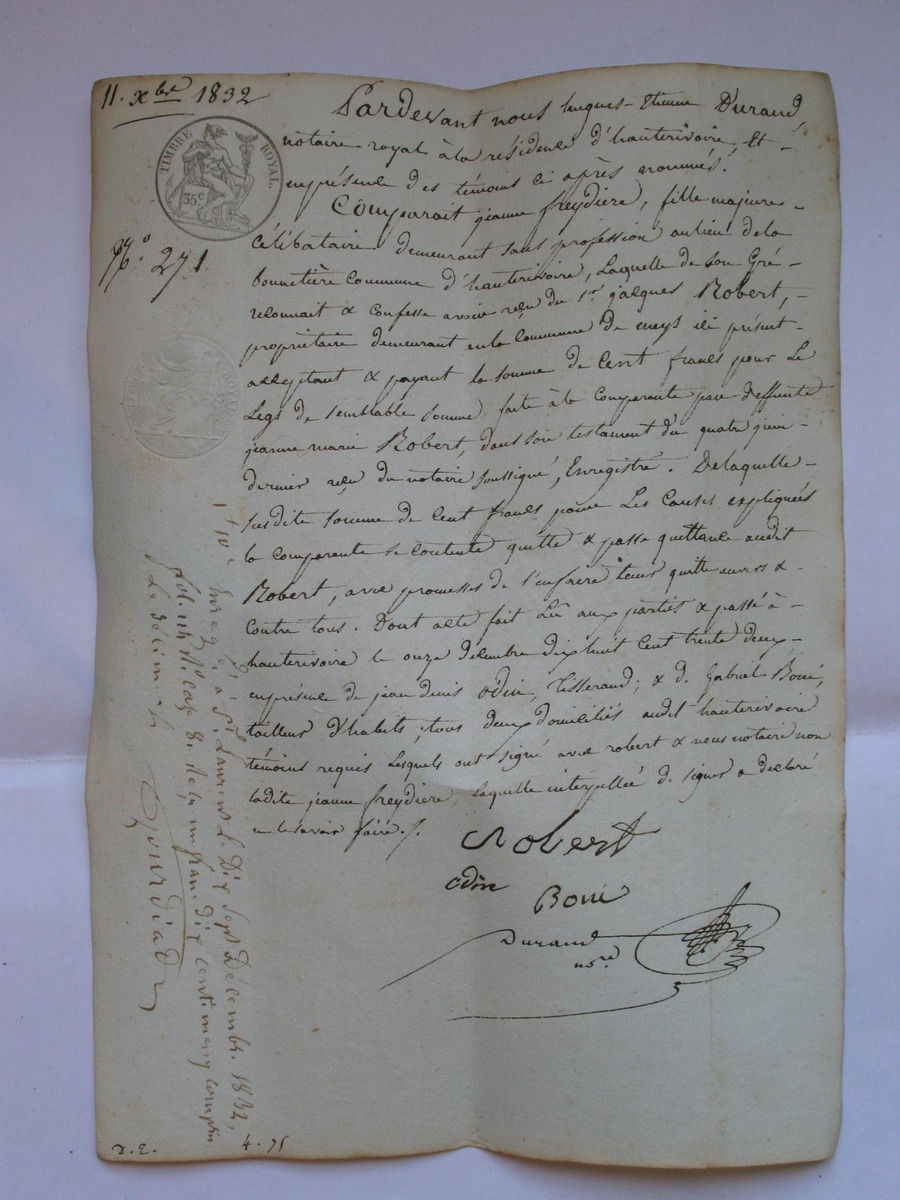 11. xbre 1832
TIMBRE ROYAL.
35c
No. 271
Pardevant nous hugues-Etienne Durand
notaire royal à la résidence d'hauterivoire, Et -
en présence des témoins ci après nommés.
Comparait jeanne freydiere, fille majeure -
Célibataire demeurant sans profession au lieu de la
bonnetière Commune d'hauterivoire, Laquelle de son Gré -
reconnait & confesse avoir reçu du sr. jacques Robert, -
propriétaire demeurant en la Commune de meys ici présent -
acceptant & payant la somme de Cent francs pour Le
Legs de semblable somme, faite à la Comparante par deffunte
jeanne marie Robert, dans son testament du quatre juin -
dernier reçu du notaire soussigné, Enregistré. Delaquelle -
susdite somme de Cent francs pour Les Causes expliquées
la comparante se contente quitte & passe quittance audit
Robert, avec promesses de l'en faire tenir quitte envers &
Contre tous. Dont acte fait Lû aux parties & passé à -
hauterivoire le onze décembre dix huit Cent trente deux -
en présence de jean denis odin, Tisserand; & d. Gabriel Boné,
tailleur d'habits, tous deux domiciliés audit hauterivoire
témoins requis Lesquels ont signé avec robert & nous notaire non
ladite jeanne freydiere, laquelle interpellée de signer a declaré
ne le savoir faire ./.
Robert
odin
Boné
Durand
nore
Enregé. à St. Laurent Le Dix Sept Décembre 1832,
fol. Ro Case 8. Reçu un franc dix centimes y compris
Le décime
Gourdiad
4.75